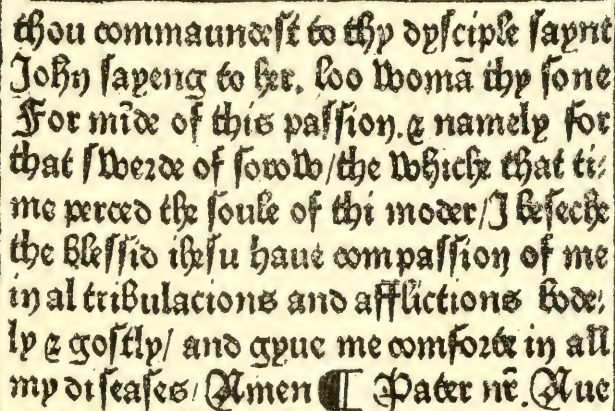 thou commaundest to thy dyſciple ſaynt
John ſayeng to her. loo womā thy ſone
For mīde of this paſſion. ⁊ namely for
that ſwerde of ſorow/the whiche that ti⸗
me perced the ſoule of thi moder/J beſeche
the bleſſid iheſu haue compaſſion of me
in al tribulacions and afflictions bode⸗
ly ⁊ goſtly/ and gyue me comforte in all
my diſeaſes/Amen ¶ Pater nr̄. Aue